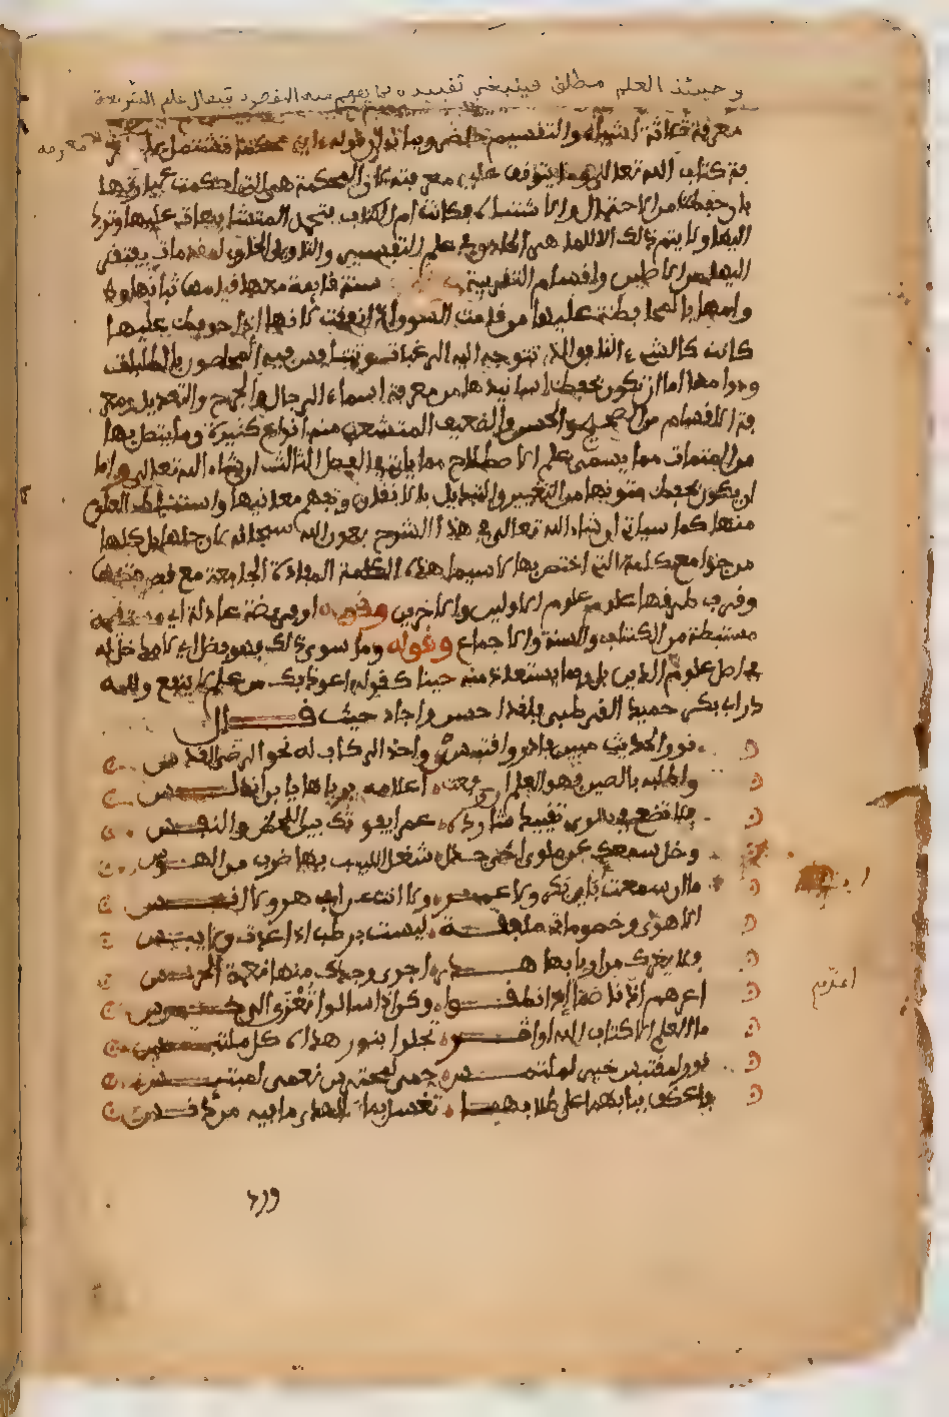 وحينئذ العلم مطلق فينبغي تقييده بما يفهم منه المقصود فيقال علم الشريعة
معرفة ثلاثة اشياء والتقسيم حاصر وبيانه ان قوله اية محكمة تشتمل على
معرفة
فة كتاب الله تعالى وما يتوقف عليه معرفته لان المحكمة هي التي احكمت عبارتها
بان حفظت من الاحتمال والاشتباه فكانت ام الكتاب فتحمل المتشابهات عليها وترد
اليها ولا يتم ذلك الا للماهر الحاذق في علم التفسير والتاويل الحاوي لمقدمات يفتقر
اليها من الاصلين واقسام العربية سنة قايمة معنى قيامها ثباتها ودو
وامها بالمحافظة عليها من قامت السوق اذا نفقت لانها اذا حوفظ عليها
كانت كالشيء النافق الذي تتوجه اليه الرغبات ويتنافس فيه المحصلون بالطلبات
ودوامها اما ان تكون بحفظ اسانيدها من معرفة اسماء الرجال والجرح والتعديل ومعر
فة الاقسام من الصحيح والحسن والضعيف المتشعب منه انواع كثيرة وما يتصل بها
من المتممات مما يسمى علم الاصطلاح مما ياتي في الفصل الثالث ان شاء الله تعالى واما
ان يكون بحفظ متونها من التغيير والتبديل بالاتقان وتفهم معانيها واستنباط العلوم
منها كما سياتي ان شاء الله تعالى في هذا الشرح بعون الله سبحانه لان جلها بل كلها
من جوامع كلمه التي اختص بها لا سيما هذه الكلمة الفاذة الجامعة مع قصر متنها
وقرب طرفها علوم علوم الاولين والاخرين وقوله او فريضة عادلة اي مستقيمة
مستنبطة من الكتاب والسنة والاجماع وقوله وما سوى ذلك فهو فضل اي لا مدخل له
في اصل علوم الدين بل ربما يستعاذ منه حينا كقوله اعوذ بك من علم لا ينفع ولله
در ابي بكر حميد القرطبي فلقد احسن واجاد حيث قال
نور الحديث مبين فادن واقتبس واحد الركاب له نحو الرضى الندس
واطلبه بالصين فهو العلم ان رفعت اعلامه برباها يا بن اندلس
فلا تضع في سوى تقييد شارده عمرا يفوتك بين اللحظ والنفس
وخل سمعك عن بلوى اخي جدل شغل اللبيب بها ضرب من الهوس
ما ان سمت بابي بكر ولا عمر ولا اتت عن ابي هر ولا انس
الا هوى وخصومات ملفقة ليست برطب اذا عدت ولا يبس
فلا يغرك من اربابها هذر اجدى وجدك منها نغمة الجرس
اعرهم اذنا صما اذا نطقوا وكن اذا سالوا تعزى الى خرس
اعرهم
ما العلم الا كتاب الله او اثر يجلو بنور هداه كل ملتبس
نور لمقتبس خير لملتمس حمى لمحترس نعمى لمبتئس
فاعكف ببابهما على طلابهما تمحو العمى بهما عن كل ملتمس
ورد